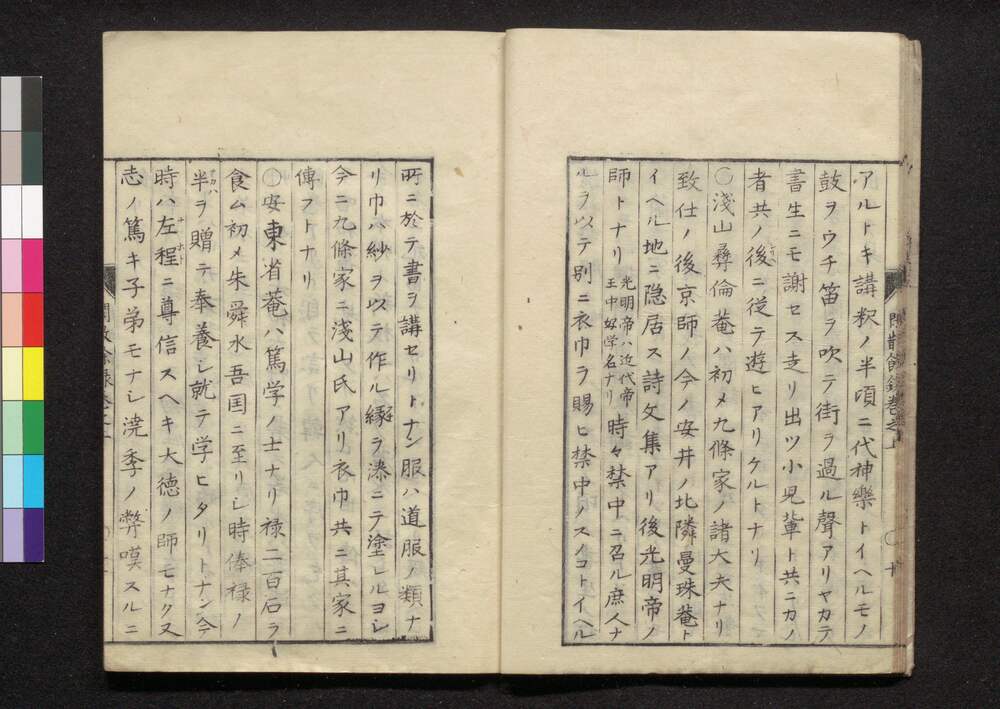 アルトキ講釈ノ半頃ニ代神樂トイヘルモノ
鼓ヲウチ笛ヲ吹テ街ヲ過ル聲アリヤカテ
書生ニモ謝セス走リ出ツ小児輩ト共ニカノ
者共ノ後ニ従テ遊ヒアリケルトナリ
〇淺山彝倫菴ハ初メ九條家ノ諸大夫ナリ
致仕ノ後京師ノ今ノ安井ノ北隣曼珠菴ト
イヘル地ニ隠居ス詩文集アリ後光明帝ノ
師トナリ光明帝ハ近代帝王中好学名ナリ時々禁中ニ召ル庶人ナ
ルヲ以テ別ニ衣巾ヲ賜ヒ禁中ノスノコトイヘル
閒散餘錄巻之上
〇十
所ニ於テ書ヲ講セリトナン服ハ道服ノ類ナ
リ巾ハ紗ヲ以テ作ル縁ヲ漆ニテ塗レルヨシ
今ニ九條家ニ淺山氏アリ衣巾共ニ其家ニ
傳フトナリ
〇安東省菴ハ篤学ノ士ナリ禄二百石ヲ
食ム初メ朱舜水吾国ニ至リシ時俸禄ノ
半ヲ贈テ奉養シ就テ学ヒタリトナン今
時ハ左程ニ尊信スヘキ大徳ノ師モナク又
志ノ篤キ子弟モナシ澆季ノ弊嘆スルニ